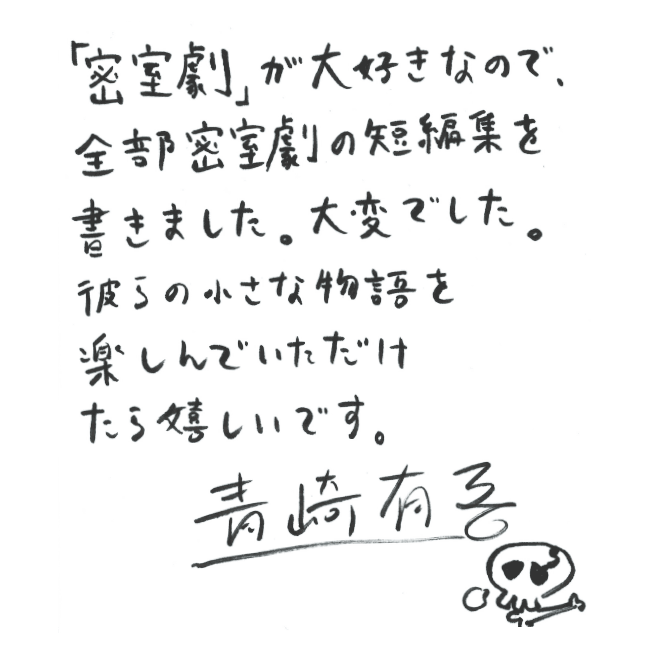 「密室劇」が大好きなので、
全部密室劇の短編集を
書きました。大変でした。
彼らの小さな物語を
楽しんでいただけ
たら嬉しいです。
青崎有吾